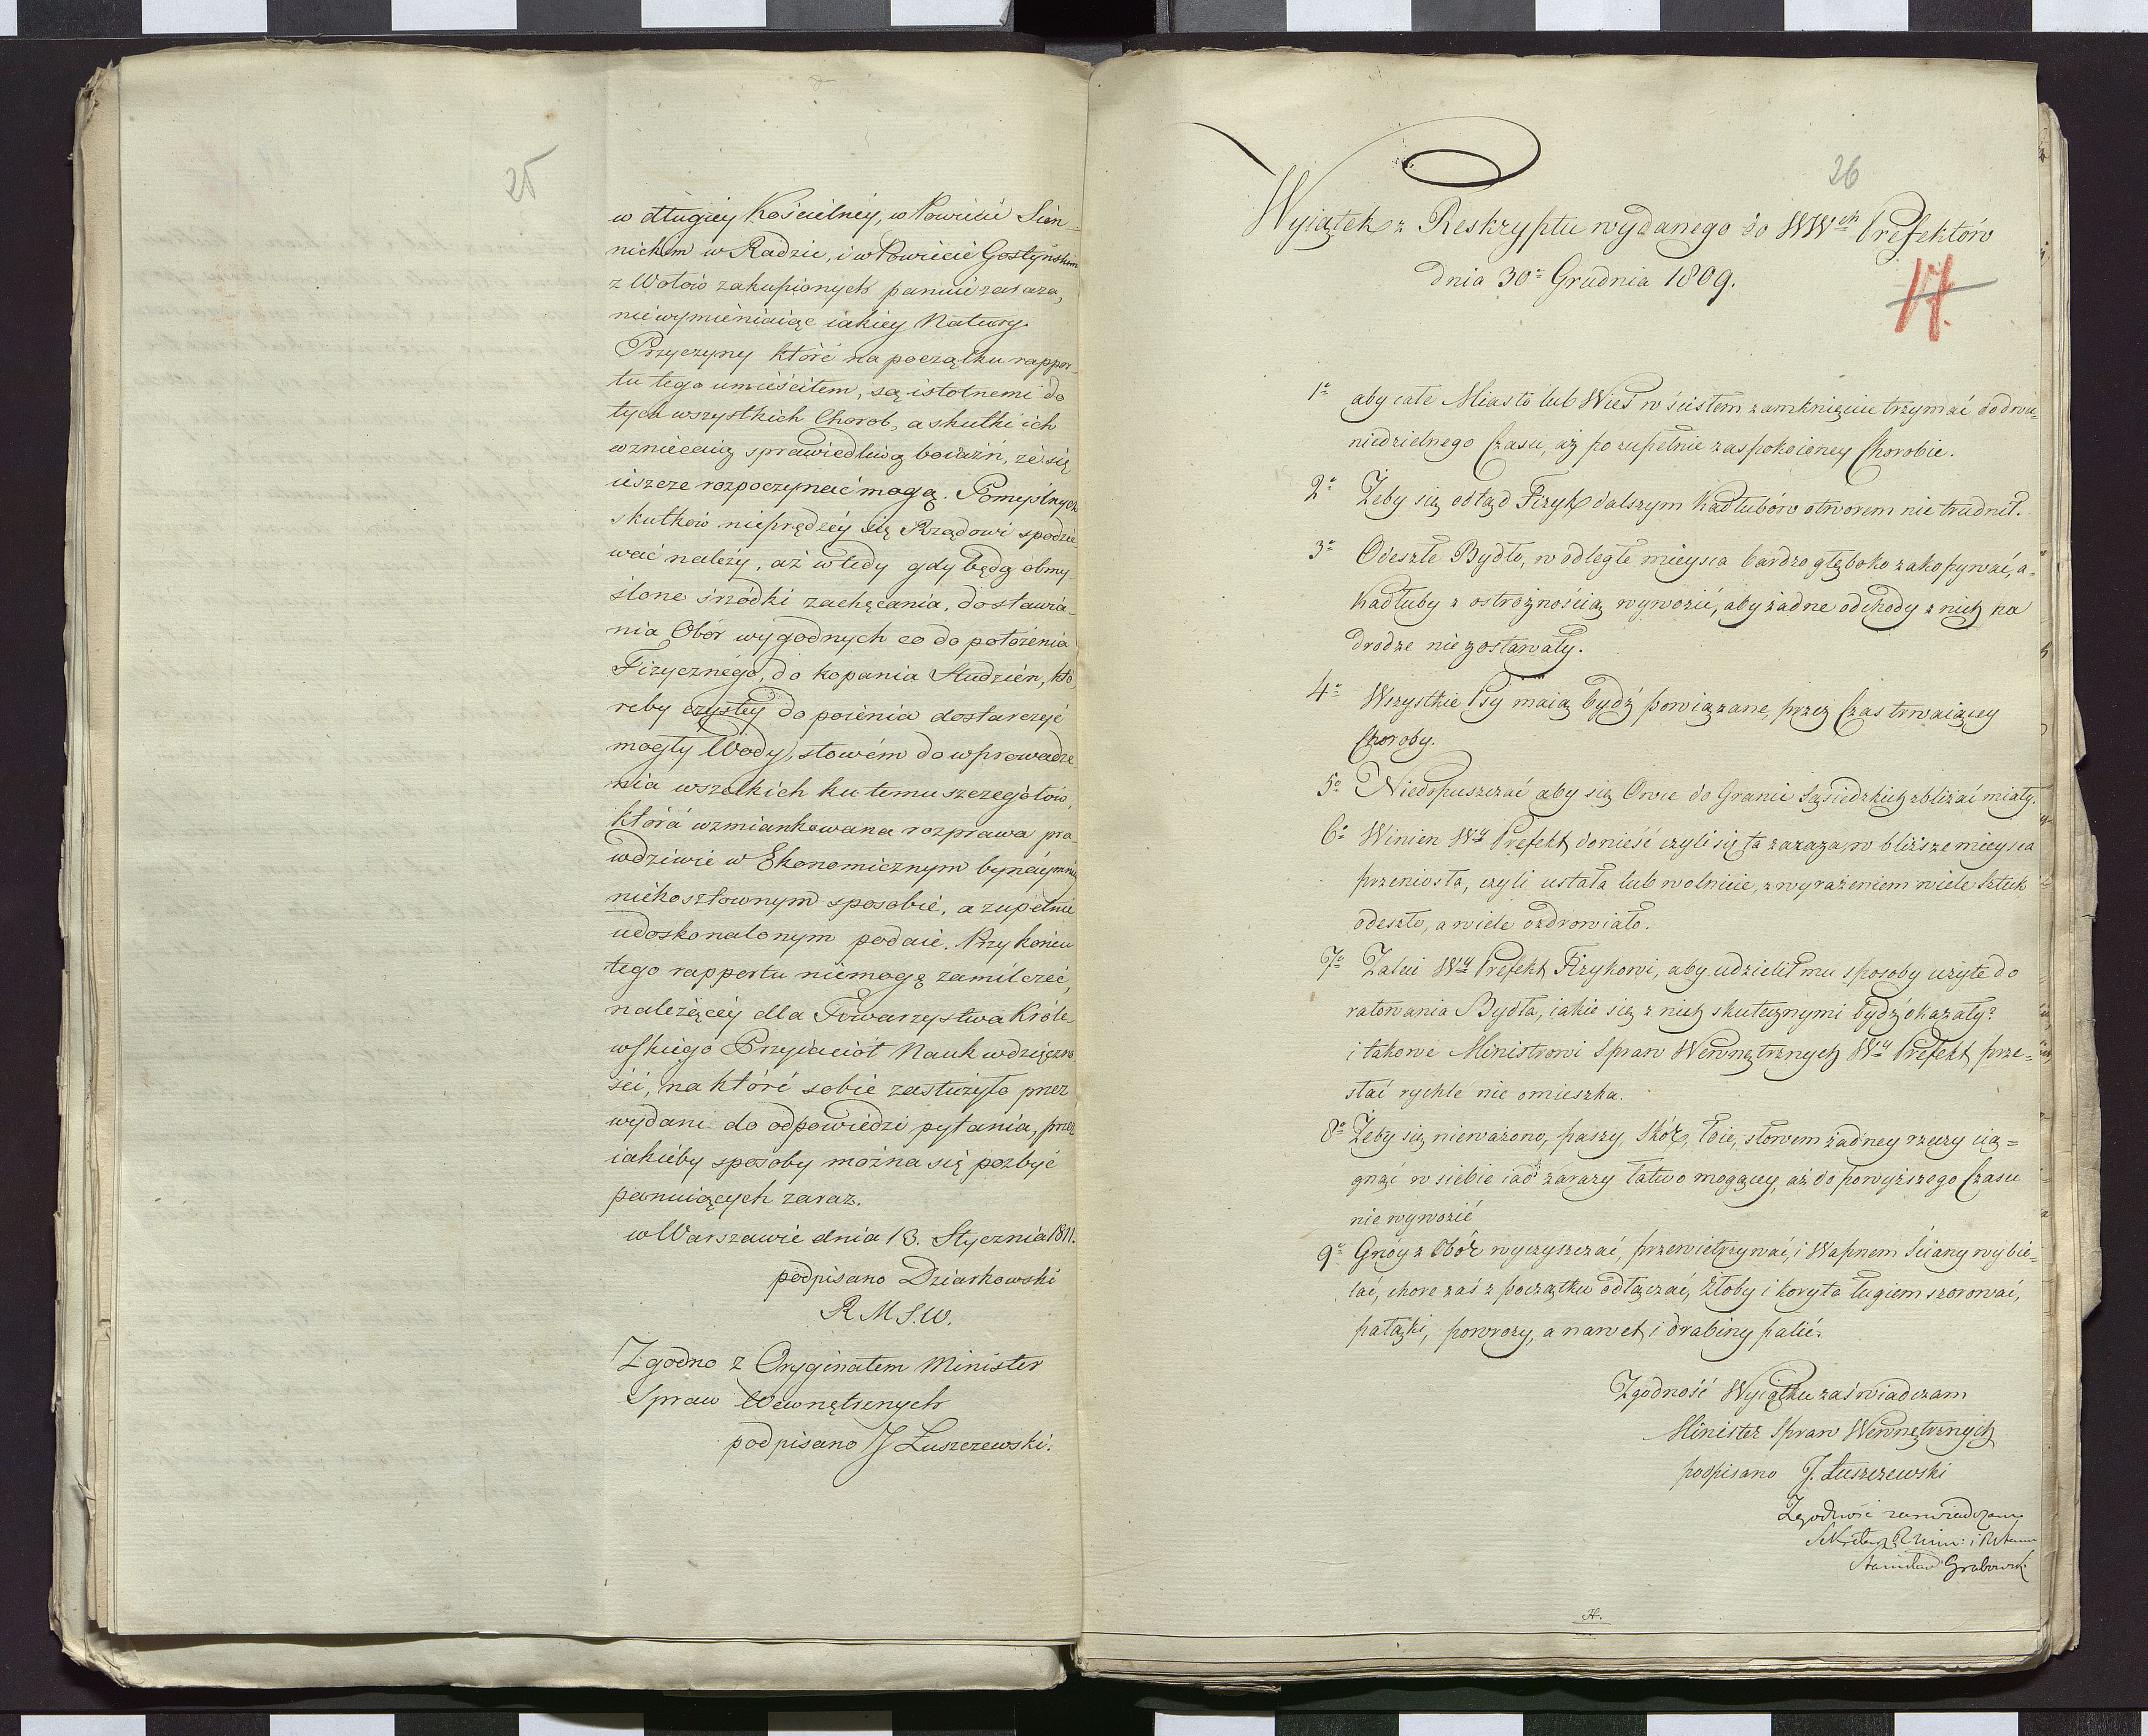 25
w długiey Kościelney, w Powiecie Sien-
nickim w Radzie, i w Powiecie Gostyńskim
z Wołów zakupionych panuie zaraza,
niewymieniaiąc iakiey Natury.
Przyczyny które na początku rappor-
tu tego umieściłem, są istotnemi do
tych wszystkich Chorob, a skutki ich
wzniecaią sprawiedliwą boiaźń, że się
ieszcze rozpoczynać mogą. Pomyślnych
skutków nieprędzey się Rządowi spodzie-
wać należy, aż wtedy gdy będą obmy-
ślone śrzódki zachęcania, dostawia-
nia Obór wygodnych co do położenia
Fizycznego, do kopania Studzien, któ-
reby czystey do poienia dostarczyć
mogły Wody, słowem do wprowadze-
nia wszelkich ku temu szczegółów,
która wzmiankowana rozprawa pra-
wdziwie w Ekonomicznym bynáymniey
niekosztownym sposobie, a zupełnie
udoskonalonym podaie. Przy końcu
tego rapportu niemogę zamilczeć,
należącey dla Towarzystwa Króle-
wskiego Przyiaciół Nauk wdzięczno-
ści, na które sobie zasłużyło przez
wydane do odpowiedzi pytania, przez
iakieby sposoby można się pozbyć
panuiących zaraz.
w Warszawie dnia 13. Stycznia 1811.
podpisano Dziarkowski
R M S. W.
Zgodno z Oryginałem Minister
Spraw Wewnętrznych
podpisano J Łuszczewski.
26
Wyiątek z Reskryptu wydanego do WWch Prefektów
dnia 30o Grudnia 1809.
17.
1o aby całe Miasto lub Wieś w ścisłem zamknięciu trzymać do dwu-
niedzielnego Czasu, aż po zupełnie zaspokoioney Chorobie.
2o Żeby się odtąd Fizyk dalszym Kadłubów otworem nie trudnił.
3o Odeszłe Bydło, w odległe mieysca bardzo głęboko zakopywać, a-
Kadłuby z ostrożnością wywozić, aby żadne odchody z nich na
drodze nie zostawały.
4o Wszystkie Psy maią bydź powiązane, przez Czas trwaiącey
Choroby.
5o Niedopuszczać aby się Owce do Granic Sąsiedzkich zbliżać miały.
6o Winien Wy Prefekt donieść czyli się ta zaraza, w bliższe mieysca
przeniosła, czyli ustała lub wolnieie, z wyrażeniem wiele Sztuk
odeszło, a wiele ozdrowiało.
7o Zaleci Wy Prefekt Fizykowi, aby udzielił mu sposoby użyte do
ratowania Bydła, iakie się z nich skutecznymi bydź okazały?
i takowe Ministrowi Spraw Wewnętrznych Wy Prefekt prze=
słać rychle nie omieszka.
8o Żeby się nieważono, paszy, Skór, łoie, słowem żadney rzeczy cią=
gnąć w siebie iad zarazy łatwo mogącey, aż do powyższego Czasu
nie wywozić
9o Gnóy z Obór wyczyszczać, przewietrzywać, i Wapnem Ściany wybie=
lać, chore zaś z początku odłączać, Żłoby i koryta ługiem szorować,
pałąki, powrozy, a nawet i drabiny palić.
Zgodność Wyiątku zaświadczam
Minister Spraw Wewnętrznych
podpisano J. Łuszczewski
Zgodność zaświadczam
Sekretarz R Min: i
Stanisław Grabowski
H.